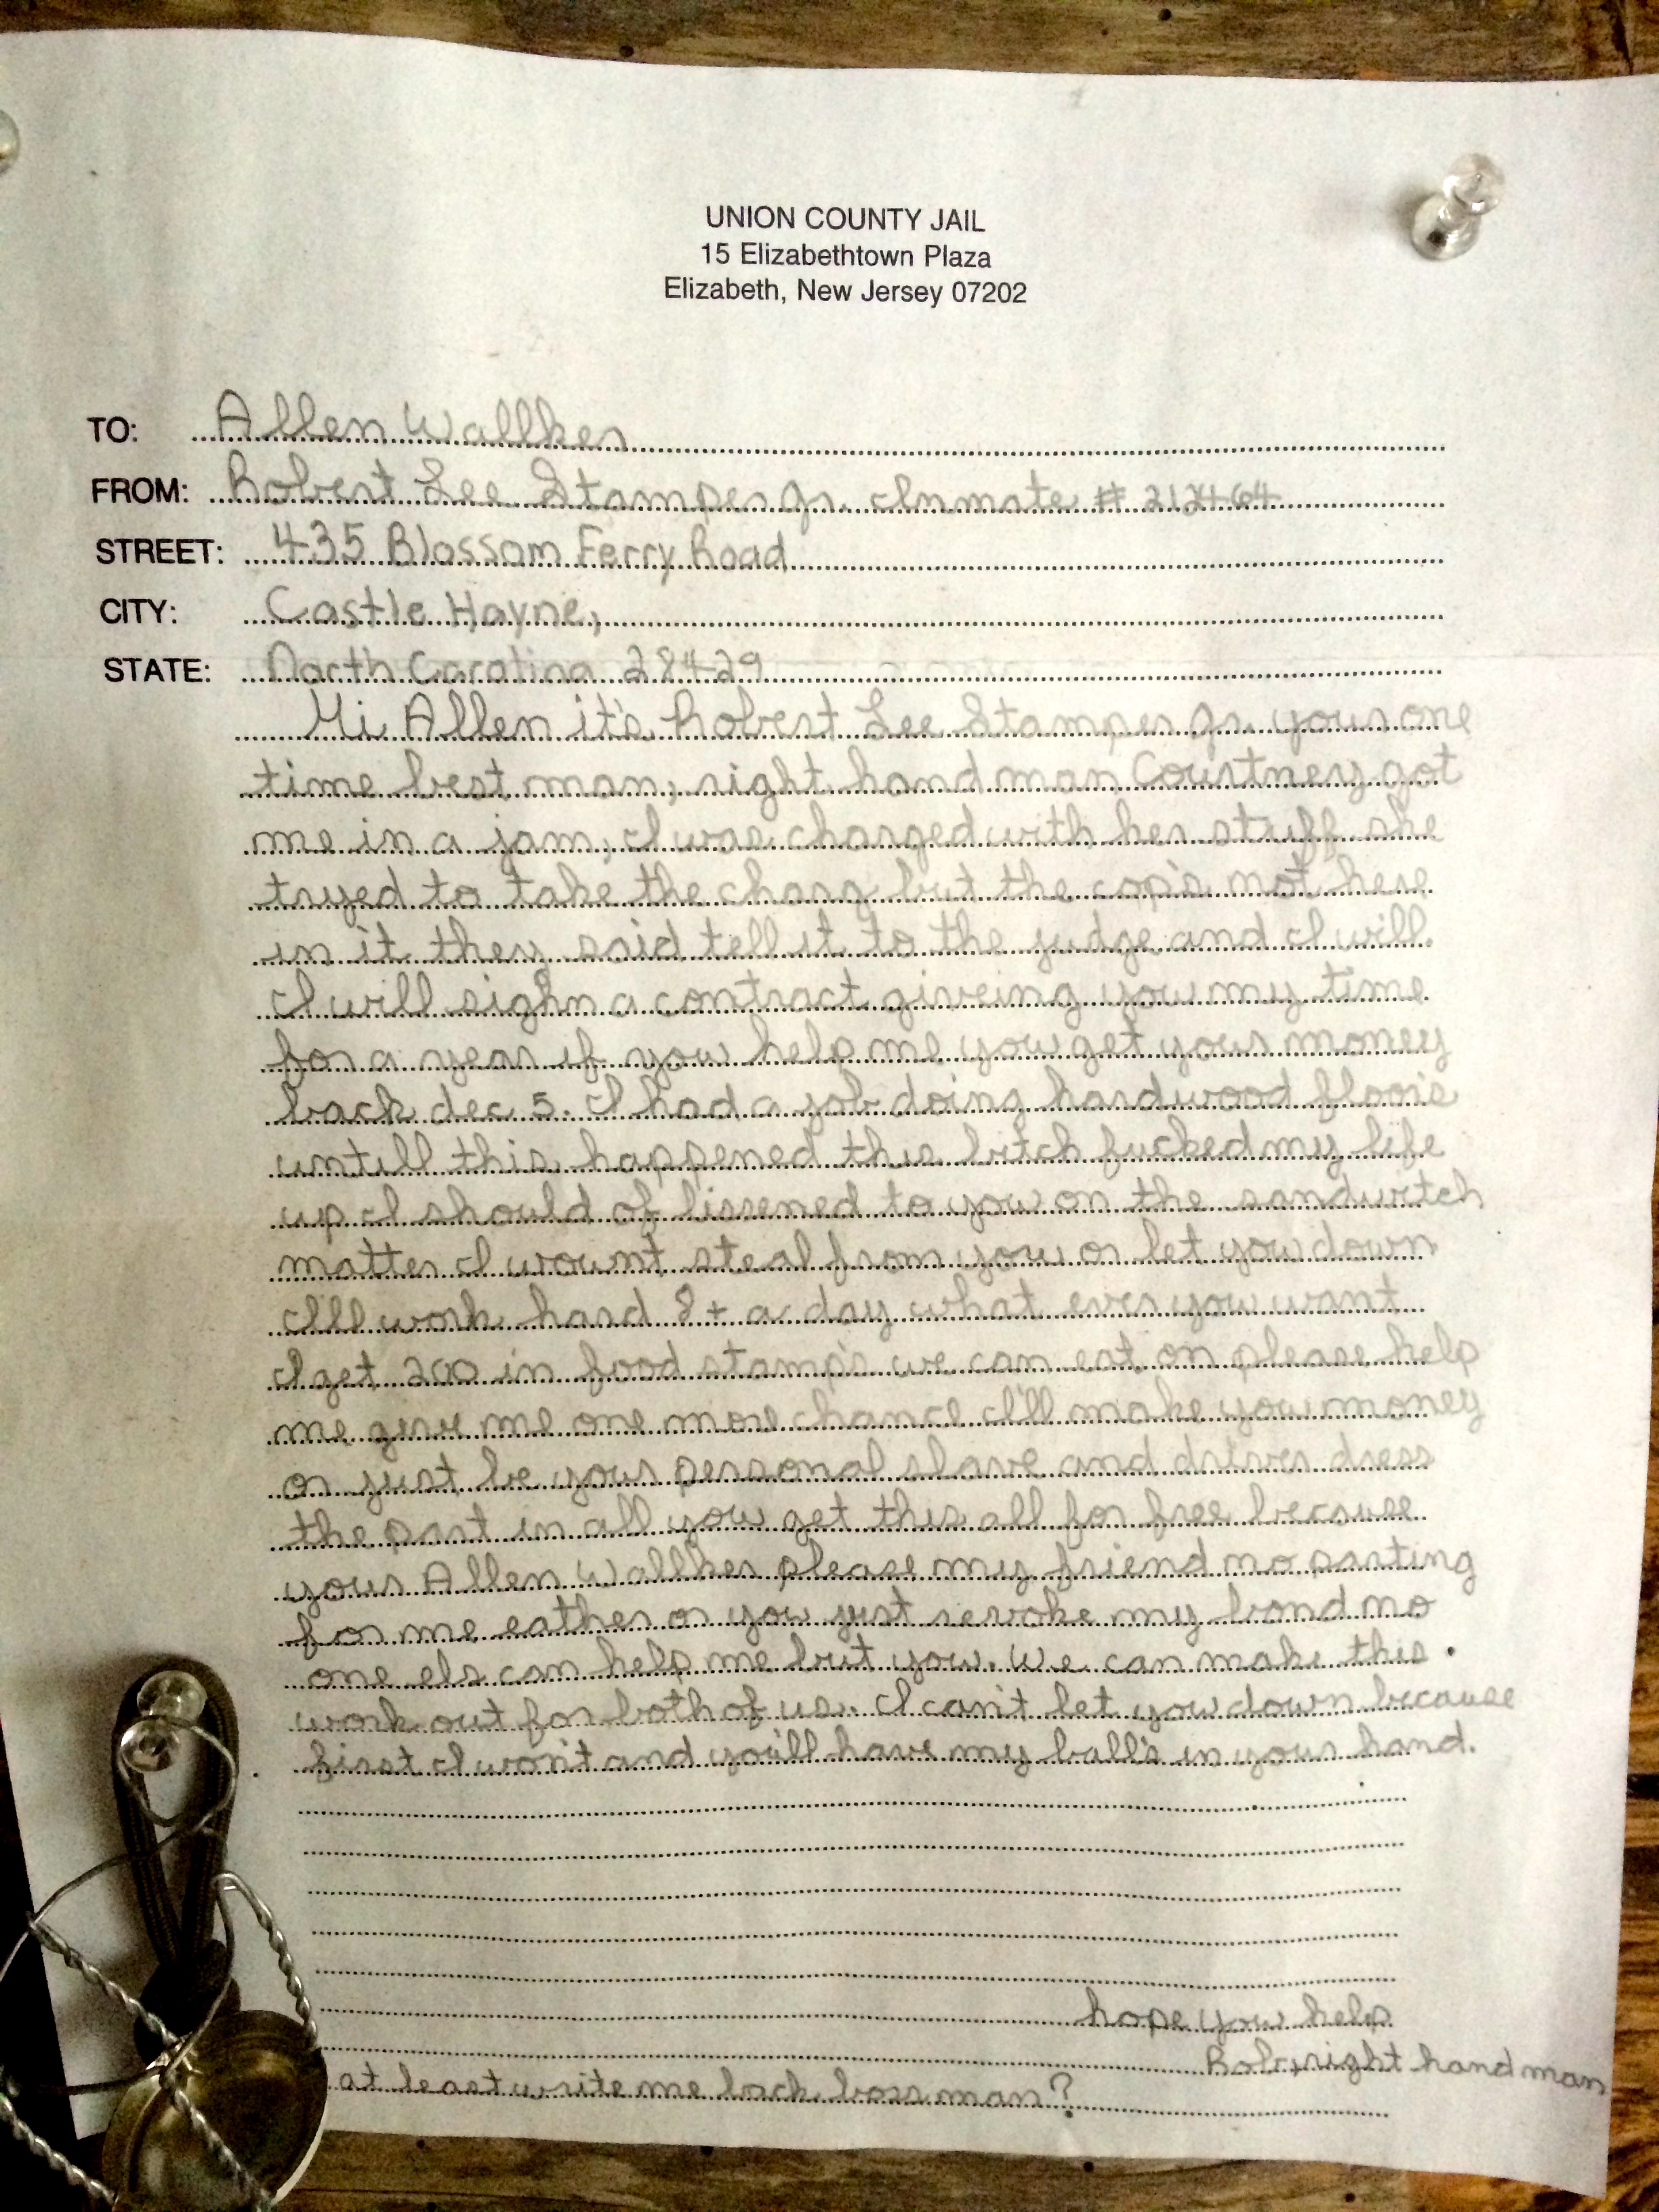 UNION COUNTY JAIL
15 Elizabethtown Plaza
Elizabeth, New Jersey 07202
TO: Allen Wallker
FROM: Robert Lee Stamper Jr. Inmate # 212464
STREET: 435 Blossom Ferry Road
CITY: Castle Hayne,
STATE: North Carolina 28429
Hi Allen it's Robert Lee Stamper Jr. your one
time best man, right hand man Courtnery got
me in a jam, I was charged with her stuff she
tryed to take the charg but the cop's not here
in it they said tell it to the judge and I will.
I will sighn a contract giveing you my time
for a year if you help me you get your money
back dec 5. I had a job doing hardwood floor's
untill this happened this bitch fucked my life
up I should of lissened to you on the sandwitch
matter I wount steal from you or let you down
I'll work hard 8+ a day what ever you want
I get 200 in food stamp's we can eat on please help
me give me one more chance I'll make you money
or just be your personal slave and driver dress
the part in all you get this all for free because
your Allen Wallker please my friend no parting
for me eather or you just revoke my bond no
one els can help me but you. We can make this.
work out for both of us. I can't let you down because
first I won't and you'll have my ball's in your hand.
hope you help
Rob, right hand man
at least write me back boss man?